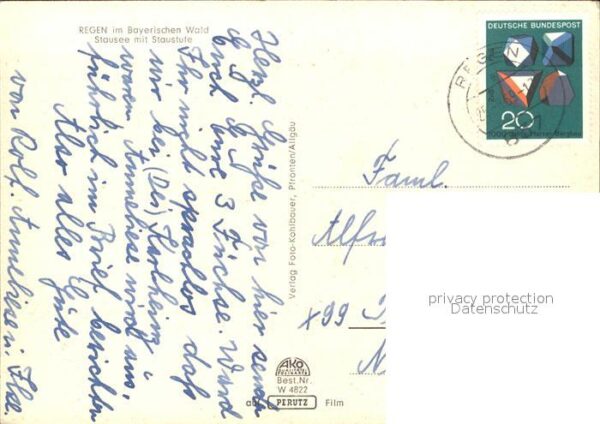 REGEN im Bayerischen Wald
Stausee mit Staustufe
Herzl. Grüße von hier sendet
Euch Eure 3 Füchse. Ward
Ihr nicht sprachlos daß
wir bei (Dei) Karlheinz
waren Anneliese wird aus,
führlich im Brief berichten
Also alles Gute
von Rolf, Anneliese u. Ilse.
Verlag Foto-Kohlbauer, Pfronten/Allgäu
AKO
Best.Nr.
W 4822
PERUTZ Film
DEUTSCHE BUNDESPOST
20
REGEN
Faml.
Alfr
privacy protection
Datenschutz